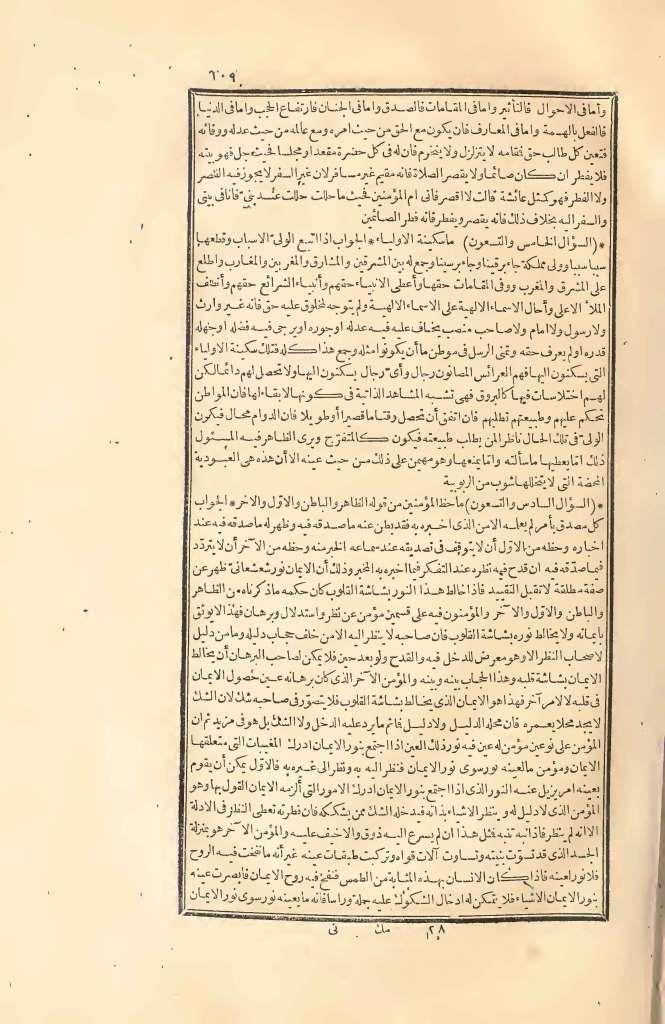 ٦٠٩
وأما فى الاحوال فالتأثير وأما فى المقامات فالصدق وأما فى الجنان فارتفاع الحجب وأما فى الدنيا
فالفعل بالهمة وأما فى المعارف فان يكون مع الحق من حيث امره ومع عالمه من حيث عدله ووفائه
فتعين كل طالب حق فمقامه لا يتزلزل ولا ينخرم فان له فى كل حضرة مقعدا ومجلسا فحيث حل فهو بيته
فلا يفطر ان كان صائما ولا يقصر الصلاة فانه مقيم غير مسافر لان غير السفر لا يجوز فيه القصر
ولا الفطر فهو كمثل عائشة قالت لا اقصر فانى ام المؤمنين فحيث ما حللت حللت عند بنىّ فأنا فى بيتى
والسفر اليه بخلاف ذلك فانه يقصر ويفطر فانه فطر الصائمين
* (السؤال الخامس والتسعون) ما سكينة الاولياء * الجواب اذا اتبع الولىّ الاسباب وقطعها
سببا سببا وولى مملكة جاء برقينا وجاء برسينا وجمع له بين المشرقين والمشارق والمغربين والمغارب واطلع
على المشرق والمغرب ووفى المقامات حقها وأعطى الانبياء حقهم وأنبياء الشرائع حقهم وأنصف
الملأ الاعلى وأحال الاسماء الالهية على الاسماء الالهية ولم يتوجه لمخلوق عليه حق فانه غير وارث
ولا رسول ولا امام ولا صاحب منصب يخاف عليه فيه عدله أو جوره او يرجى فيه فضله اوجهله
قدره او لم يعرف حقه وتمنى الرسل فى موطن ما أن يكونوا مثله وجمع هذا كله فتلك سكينة الاولياء
التى يسكنون اليها فهم العرائس المصانون رجال وأىّ رجال يسكنون اليها ولا تحصل لهم دائما لكن
لهم اختلاسات فيها كالبروق فهى تشبه المشاهد الذاتية فى كونها لا بقاء لها فان المواطن
تحكم عليهم وطبيعتهم تطلبهم فان اتفق أن تحصل وقتا ما قصيرا أو طويلا فان الدوام محال فيكون
الولىّ فى تلك الحال ناظرا لمن يطلب طبيعته فيكون كالمتفرج ويرى الظاهر فيه المسئول
ذلك اما يعطيها ما سألته واما يمنعها وهو مهيمن على ذلك من حيث عينه الا أن هذه هى العبودية
المحضة التى لا يتخللها شوب من الربوبية
* (السؤال السادس والتسعون) ما حظ المؤمنين من قوله الظاهر والباطن والاول والآخر * الجواب
كل مصدق بأمر لم يعلمه الا من الذى اخبره به فقد بطن عنه ما صدقه فيه وظهر له ما صدقه فيه عند
اخباره وحظه من الاول أن لا يتوقف فى تصديقه عند سماعه الخبر منه وحظه من الآخر أن لا يتردد
فيما صدقه فيه ان قدح فيه نظره عند التفكر فيما اخبره به المخبر وذلك أن الايمان نور شعشعانى ظهر عن
صفة مطلقة لا تقبل التقييد فاذا خالط هذا النور بشاشة القلوب كان حكمه ما ذكرناه من الظاهر
والباطن والاول والآخر والمؤمنون فيه على قسمين مؤمن عن نظر واستدلال وبرهان فهذا لا يوثق
بايمانه ولا يخالط نوره بشاشة القلوب فان صاحبه لا ينظر اليه الا من خلف حجاب دليله وما من دليل
لاصحاب النظر الا وهو معرض للدخل فيه والقدح ولو بعد حين فلا يمكن لصاحب البرهان أن يخالط
الايمان بشاشة قلبه وهذا الحجاب بينه وبينه والمؤمن الآخر الذى كان برهانه عين حصول الايمان
فى قلبه لا لامر آخر فهذا هو الايمان الذى يخالط بشاشة القلوب فلا يتصوّر فى صاحبه شك لان الشك
لا يجد محلا يعمره فان محله الدليل ولا دليل فما ثم ما يرد عليه الدخل ولا الشك بل هو فى مزيد ثم ان
المؤمن على نوعين مؤمن له عين فيه نور ذلك العين اذا اجتمع بنور الايمان ادرك المغيبات التى متعلقها
الايمان ومؤمن ما لعينه نور سوى نور الايمان فنظر اليه به ونظر الى غيره به فالاول يمكن أن يقوم
بعينه امر يزيل عنه النور الذى اذا اجتمع بنور الايمان ادرك الامور التى ألزمه الايمان القول بها وهو
المؤمن الذى لا دليل له وينظر الاشياء بذاته فيدخله الشك ممن يشككه فان فطرته تعطى النظر فى الادلة
الا انه لم ينظر فاذا نبه تنبه فمثل هذا ان لم يسرع اليه ذوق والا خيف عليه والمؤمن الآخر هو بمنزلة
الجسد الذى قد تسوّت بنيته وتساوت آلات قواه وتركبت طبقات عينه غير أنه ما نفخت فيه الروح
فلا نور لعينه فاذا كان الانسان بهذه المثابة من الطمس فنفخ فيه روح الايمان فابصرت عينه
بنور الايمان الاشياء فلا يتمكن له ادخال الشكوك عليه جملة وراسا فانه ما بعينه نور سوى نور الايمان
٢٨ مك نى